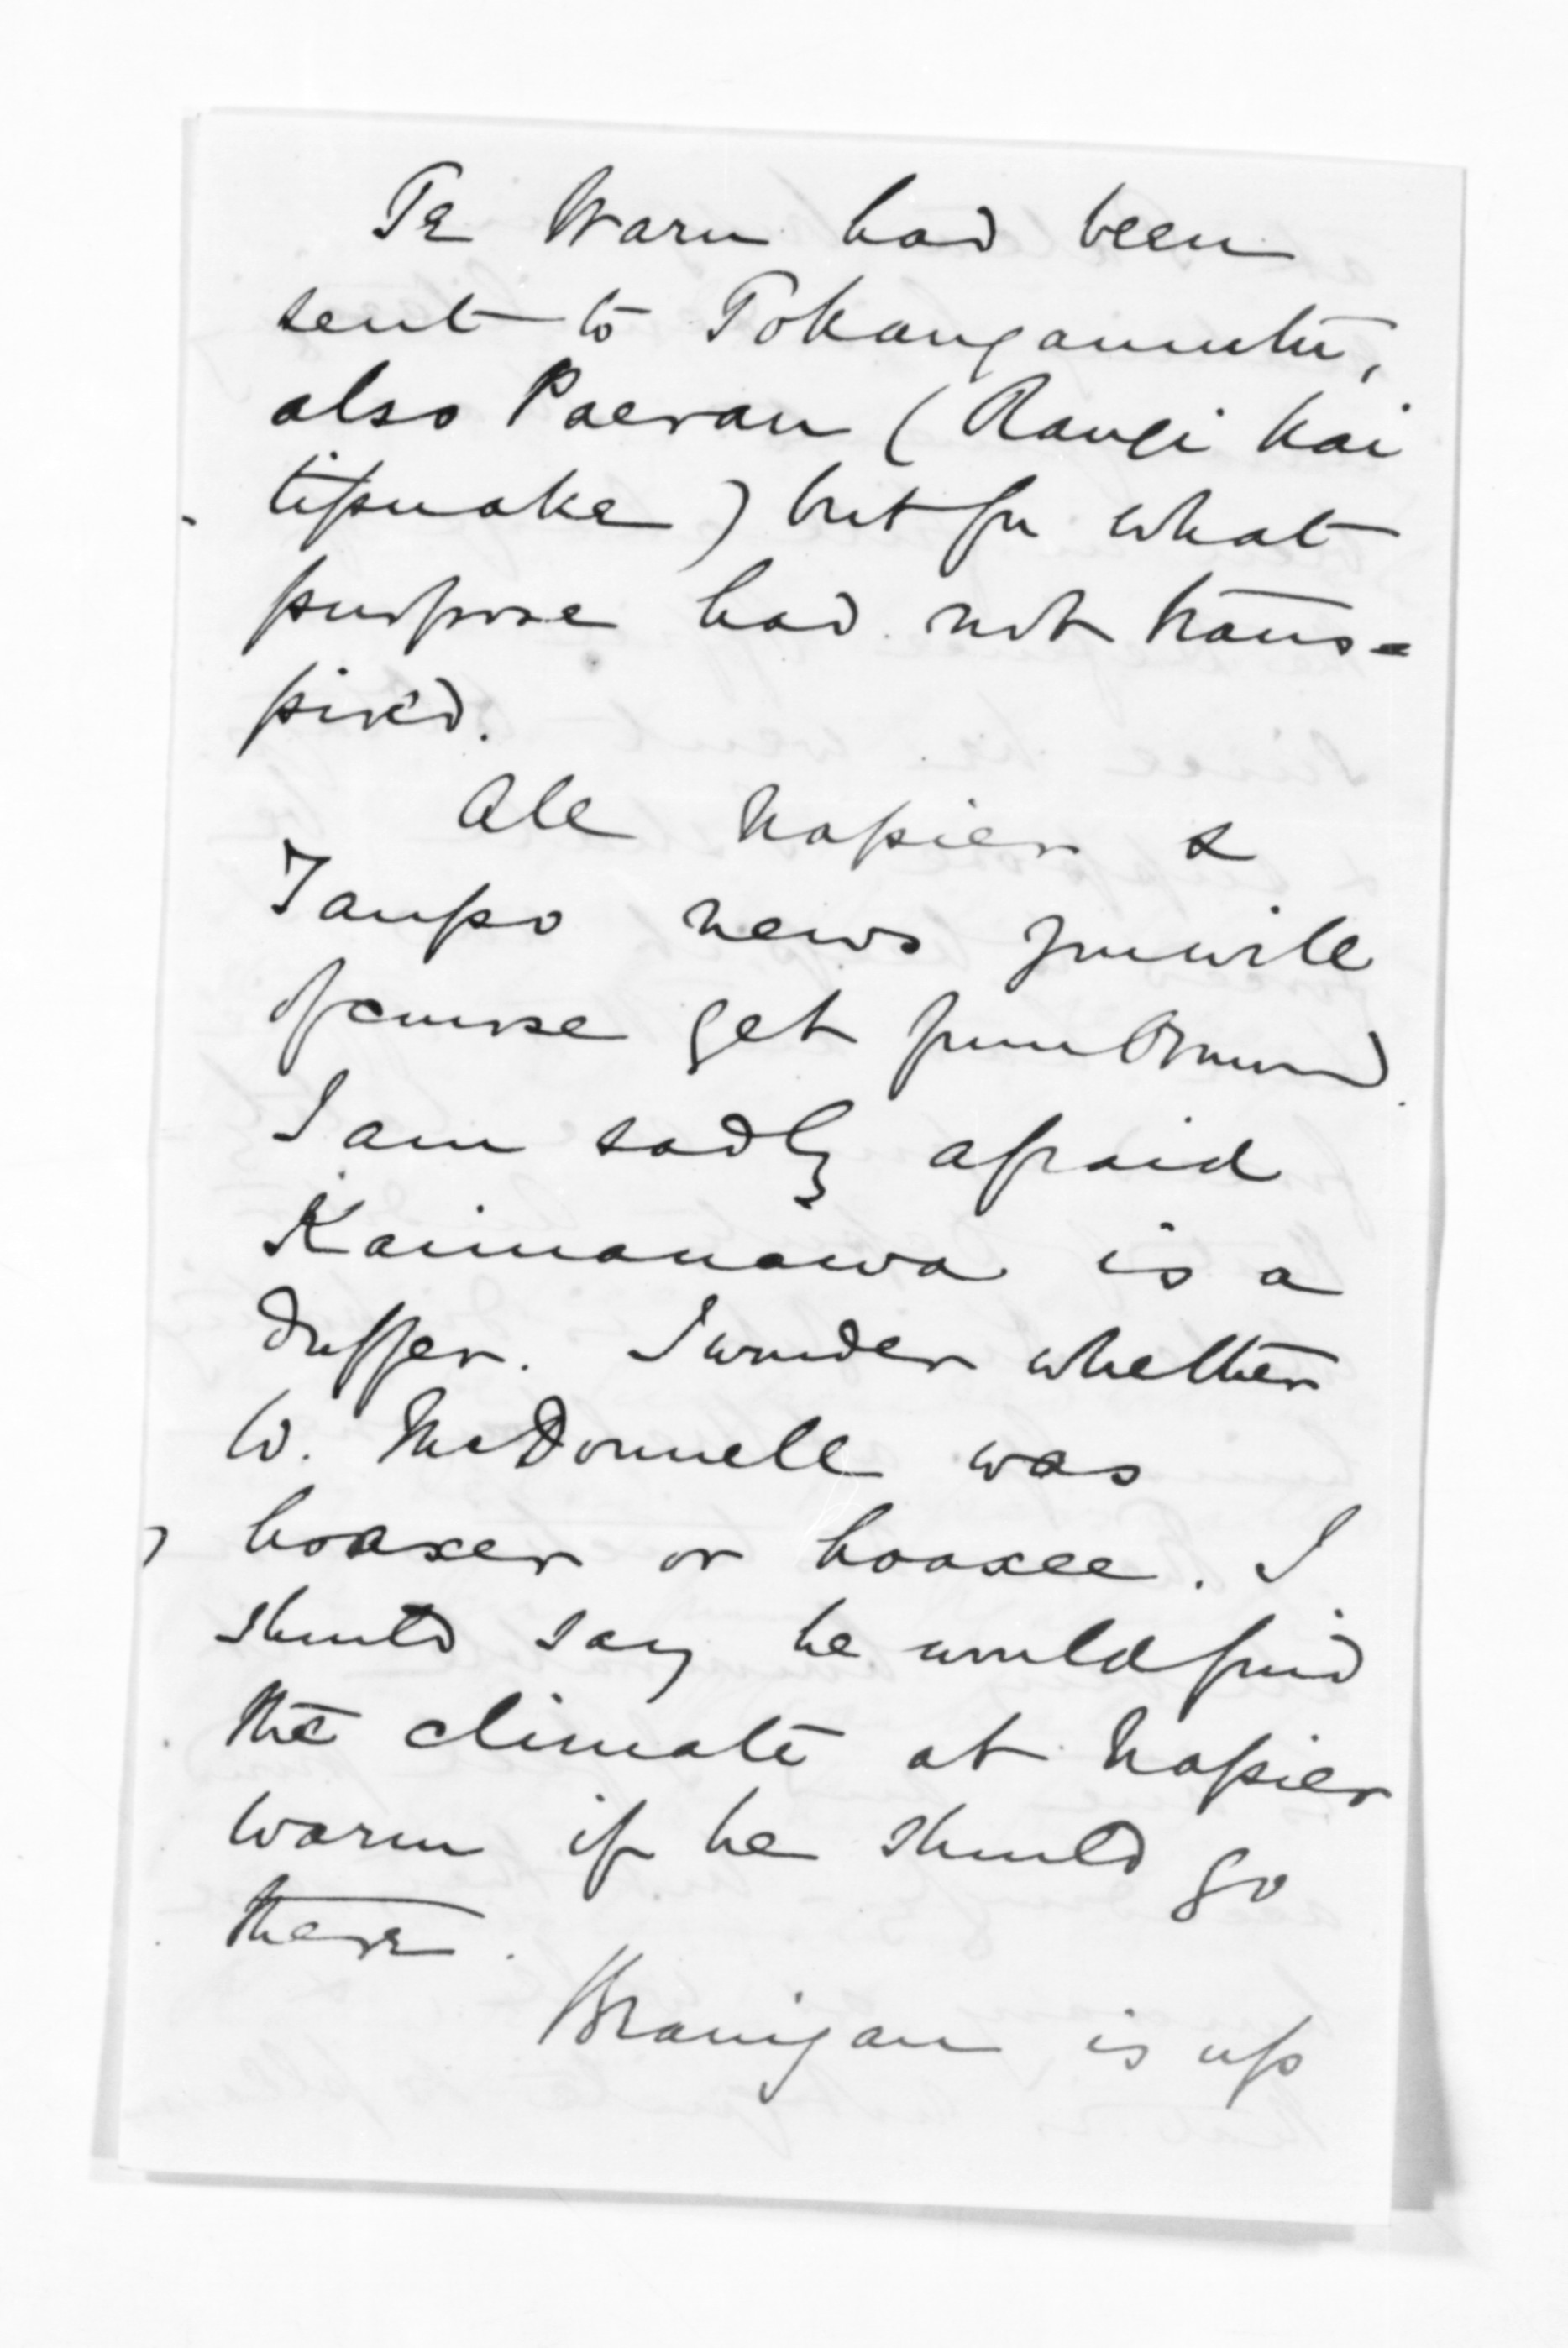 Te Waru had been
sent to Tokangamutu,
also Paerau (Rangi kai
tipuake) but for what
purpose had not trans=
pir'd.
All Napier &
Taupo news you will
of course get from Ormond.
I am sadly afraid
Kaimanawa is a
duffer. I wonder whether
W. McDonnell was
hoaxer or hoaxee. I
should say he would find
the climate at Napier
warm if he should go
there.
Branigan is up